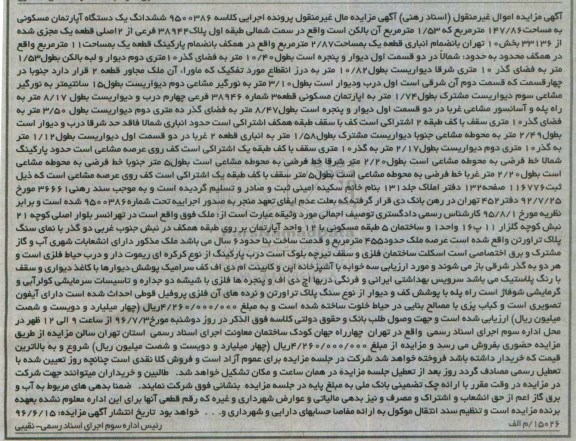 آگهی مزایده اموال غیرمنقول (اسناد رهنی) آگهی مزایده مال غیرمنقول پرونده اجرایی کلاسه ۹۵۰۰۳۸۶ ششدانگ یک دستگاه آپارتمان مسکونی
به مساحت ۱۴۷/۸۶ مترمربع که ۱/۵۳ مترمربع آن بالکن است واقع در سمت شمالی طبقه اول پلاک ۳۸۹۴۴ فرعی از ۲ اصلی قطعه یک مجزی شده
از ۳۳۱۳۶ بخش ۱۰ تهران بانضمام انباری قطعه یک بمساحت ۲/۸۷ مترمربع واقع در همکف بانضمام پارکینگ قطعه یک بمساحت ۱۱ مترمربع واقع
در همکف محدود به حدود: شمالا در دو قسمت اول دیوار و پنجره است بطول ۱۰/۴۰ متر به فضای گذر ۱۰ متری دوم دیوار و لبه بالکن بطول ۱/۵۳
متر به فضای گذر ۱۰ متری شرقا دیواریست بطول ۱۰/۸۲ متر به درز انقطاع مورد تفکیک که ماورا، آن ملک مجاور قطعه ۲ قرار دارد جنوبا در
چهار قسمت که قسمت دوم آن شرقی است اول درب ودیوار است بطول ۳/۱۰ متر به نورگیر مشاعی دوم دیواریست بطول ۱۵ سانتیمتر به نورگیر
مشاعی سوم دیواریست مشترک بطول ۱/۷۴ متر به آپارتمان مسکونی قطعه ۳ شماره ۳۸۹۴۶ فرعی چهارم درب و دیواریست بطول ۸/۱۷ متر به
راه پله و آسانسور مشاعی غربا در دو قسمت اول دیوار و پنجره است بطول ۸/۴۷ متر به فضای گذر ده متری دوم دیواریست بطول ۳/۵۰ متر به
فضای گذر ۱۰ متری سقف با کف طبقه ۲ اشتراکی است کف با سقف طبقه همکف اشتراکی است حدود انباری شمالا فاقد حد شرقا درب و دیوار است
بطول ۲/۴۹ متر به محوطه مشاعی جنوبا دیواریست مشترک بطول ۱/۵۸ متر به انباری قطعه ۲ غربا در دو قسمت اول دیواریست بطول ۱/۱۲ متر
به گذر ۱۰ متری دوم دیواریست بطول ۲/۱۷ متر به گذر ۱۰ متری سقف با کف طبقه یک اشتراکی است کف روی عرصه مشاعی است حدود پارکینگ
شمالا خط فرضی به محوطه مشاعی است بطول ۲/۲۰ متر شرقا خط فرضی به محوطه مشاعی است بطول ۵ متر جنوبا خط فرضی به محوطه مشاعی
است بطول ۲/۲۰ متر غربا خط فرضی به محوطه مشاعی است بطول ۵ متر سقف با کف طبقه یک اشتراکی است کف روی عرصه مشاعی است که ذیل
ثبت ۱۱۶۷۷۶ صفحه ۱۳۲ دفتر املاک جلد ۱۳۱ بنام خانم سکینه امینی ثبت و صادر و تسلیم گردیده است و به موجب سند رهنی ۳۶۶۶۱ مورخ
۹۲/۷/۲۵ دفتر ۴۵۲ تهران در رهن بانک دی قرار گرفته که بعلت عدم ایفای تعهد منجر به صدور اجراییه تحت شماره ۹۵۰۰۳۸۶ شده است و برابر
نظریه مورخ ۹۵/۸/۱ کارشناس رسمی دادگستری توصیف اجمالی مورد وثیقه عبارت است از: ملک فوق واقع است در تهرانسر بلوار اصلی کوچه ۲۱
نبش کوچه گلزار ۱۱ پ ۱۶ واحد ۱ و ساختمان ۵ طبقه مسکونی با ۱۲ واحد آپارتمان بر روی طبقه همکف در نبش جنوب غربی دو گذر با نمای سنگ
پلاک تراورتن واقع شده است عرصه ملک حدود ۴۵۵ مترمربع و قدمت ساخت بنا حدود ۶ سال می باشد ملک مذکور دارای انشعابات شهری آب و گاز
مشترک و برق اختصاصی است اسکلت ساختمان فلزی و سقف تیرچه بلوک است درب پارکینگ از نوع کرکره ای ریموت دار و درب حیاط فلزی است و
هر دو به گذر شرقی باز می شوند و مورد ارزیابی سه خوابه با آشپزخانه اپن و کابینت ام دی اف کف سرامیک پوشش دیوارها با کاغذ دیواری و سقف
با رنگ پلاستیک می باشد سرویس بهداشتی ایرانی و فرنگی دربها اچ دی اف و پنجره ها فلزی با شیشه دو جداره و تاسیسات سرمایشی کولرآبی و
گرمایشی شوفاژ است راه پله با پوشش کف و دیوار از نوع سنگ پلاک تراورتن و نرده های آن فلزی پروفیل قوطی احداث شده است دارای آیفون
تصویری است و کباب پزی با مصالح بنایی در حیاط خلوت ساخته شده است و به مبلغ ۴/۲۶۰/۰۰۰/۰۰۰ ریال (چهار میلیارد و دویست و شصت
میلیون ریال) ارزیابی شده است و جهت وصول طلب بانک و حقوق دولتی کلاسه فوق الذکر در روز دوشنبه مورخ ۹۶/۷/۳ از ساعت ۹ الی ۱۲ ظهر در
محل اداره سوم اجرای اسناد رسمی واقع در تهران چهارراه جهان کودک ساختمان معاونت اجرای اسناد رسمی استان تهران سالن مزایده از طریق
مزایده حضوری بفروش می رسد و مزایده از مبلغ ۴/۲۶۰/۰۰۰/۰۰۰ ریال (چهار میلیارد و دویست و شصت میلیون ریال) شروع و به بالاترین
قیمت که خریدار داشته باشد فروخته خواهد شد شرکت در جلسه مزایده برای عموم آزاد است و فروش کلا نقدی است چنانچه روز تعیین شده با
تعطیل رسمی مصادف گردد روز بعد از تعطیل جلسه مزایده در همان ساعت و مکان تشکیل خواهد شد. طالبین و خریداران میتوانند جهت شرکت
در مزایده در وقت مقرر با ارائه چک تضمینی بانک ملی به مبلغ پایه در جلسه مزایده بنشانی فوق شرکت نمایند. ضمنا بدهی های مربوط به آب و
برق گاز اعم از حق انشعاب و اشتراک و مصرف و نیز بدهی مالیاتی و عوارض شهرداری و غیره که رقم قطعی آنها برای این اداره معلوم نشده بعهده
برنده مزایده است و تنظیم سند انتقال موکول به ارائه مفاصا حسابهای دارایی و شهرداری و. . . خواهد بود تاریخ انتشار آگهی مزایده: ۹۶/۶/۱۵
۱۵۰۲۶/م الف
رئیس اداره سوم اجرای اسناد رسمی- نقیبی